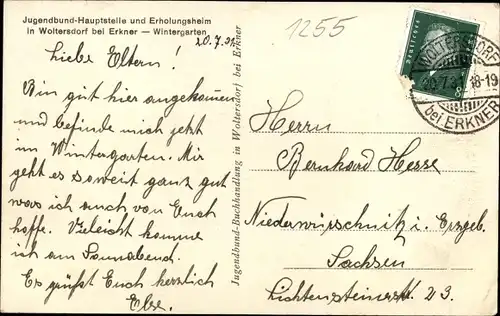 Jugendbund-Hauptstelle und Erholungsheim
in Woltersdorf bei Erkner — Wintergarten
20.7.31.
Liebe Eltern!
Bin gut hier angekommen
und befinde mich jetzt
im Wintergarten. Mir
geht es soweit ganz gut
was ich auch von Euch
hoffe. Vieleicht komme
ich am Sonnabend.
Es grüßt Euch herzlich
Else.
Jugendbund-Buchhandlung in Woltersdorf bei Erkner
1255
WOLTERSDORF
7.31 18-19
bei ERKNER
8
Herrn
Bernhard Hesse
Niederwürschnitz i. Erzgeb.
Sachsen
Lichtensteinerstr. 23.